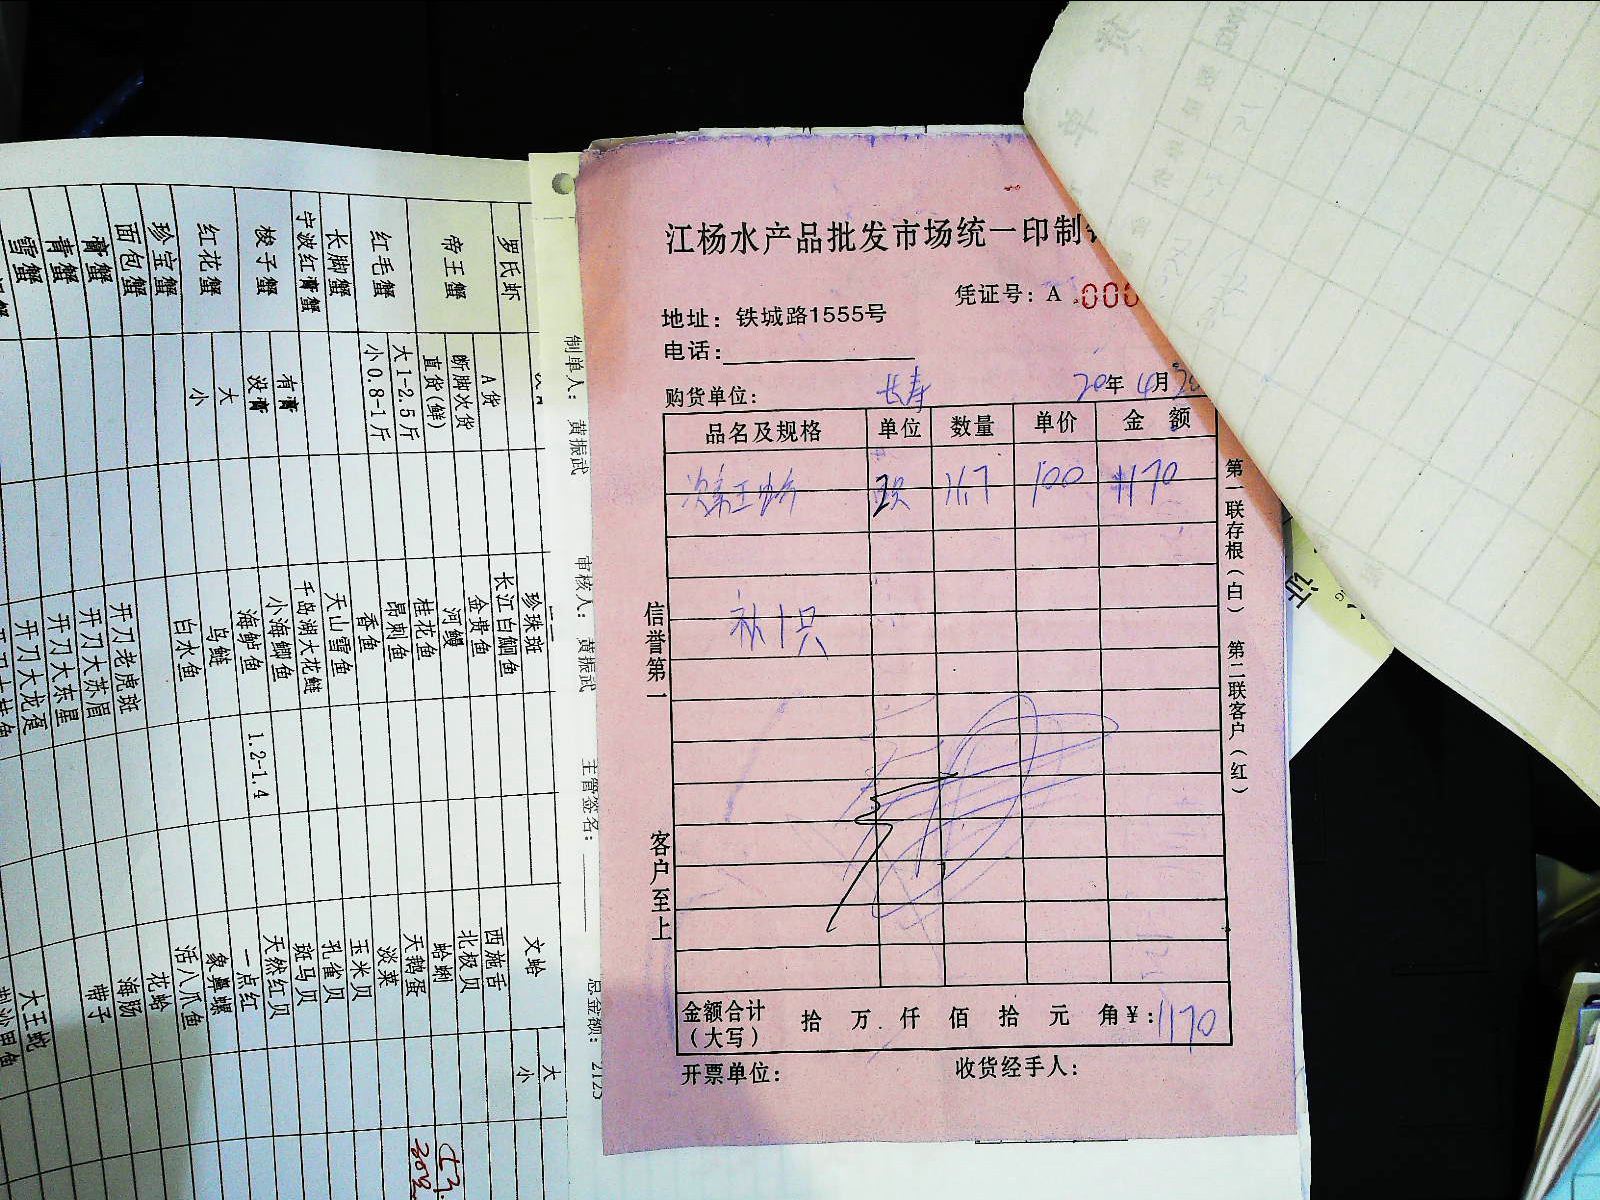 江杨水产品批发市场统一印制
凭证号：A .000
地址：铁城路1555号
电话：
购货单位： 长寿 20年4月20
品名及规格 单位 数量 单价 金 额
次帝王蟹 2只 11.7 100 1170
补1只
金额合计（大写） 拾 万 仟 佰 拾 元 角￥：1170
开票单位： 收货经手人：
信誉第一 客户至上
第一联存根（白） 第二联客户（红）
制单人： 黄振武 审核人： 黄振武 主管签名： 总金额：
罗氏虾
帝王蟹 A货
断脚次货
直货(鲜)
红毛蟹 大1-2.5斤
小0.8-1斤
长脚蟹
宁波红膏蟹
梭子蟹 有膏
没膏
红花蟹 大
小
珍宝蟹
面包蟹
膏蟹
青蟹
雪蟹
珍珠斑
长江白鮰鱼
金贵鱼
河鳗
桂花鱼
昂刺鱼
香鱼
天山雪鱼
千岛湖大花鲢
小海鲫鱼
海鲈鱼 1.2-1.4
乌鲢
白水鱼
开刀老虎斑
开刀大苏眉
开刀大东星
开刀大龙趸
文蛤 大
小
西施舌
北极贝
蛤蜊
天鹅蛋
淡菜
玉米贝
孔雀贝
斑马贝
天然红贝
一点红
象鼻螺
活八爪鱼
花蛤
海肠
带子
大王蛇